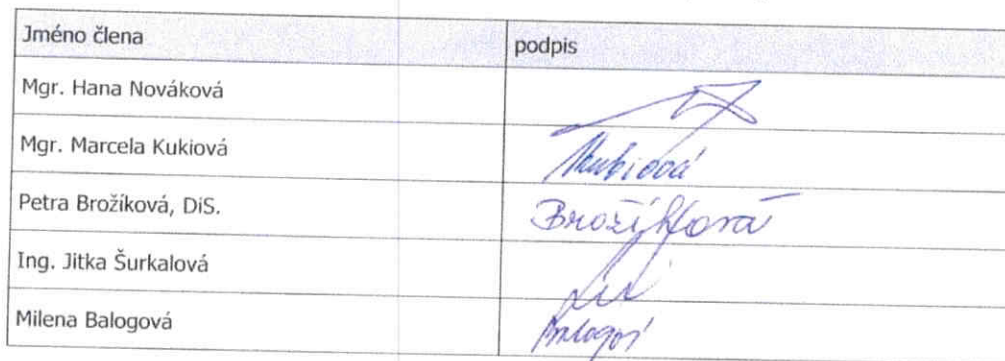 Jméno člena podpis
Mgr. Hana Nováková
Mgr. Marcela Kukiová
Petra Brožíková, DiS. Brožíková
Ing. Jitka Šurkalová
Milena Balogová